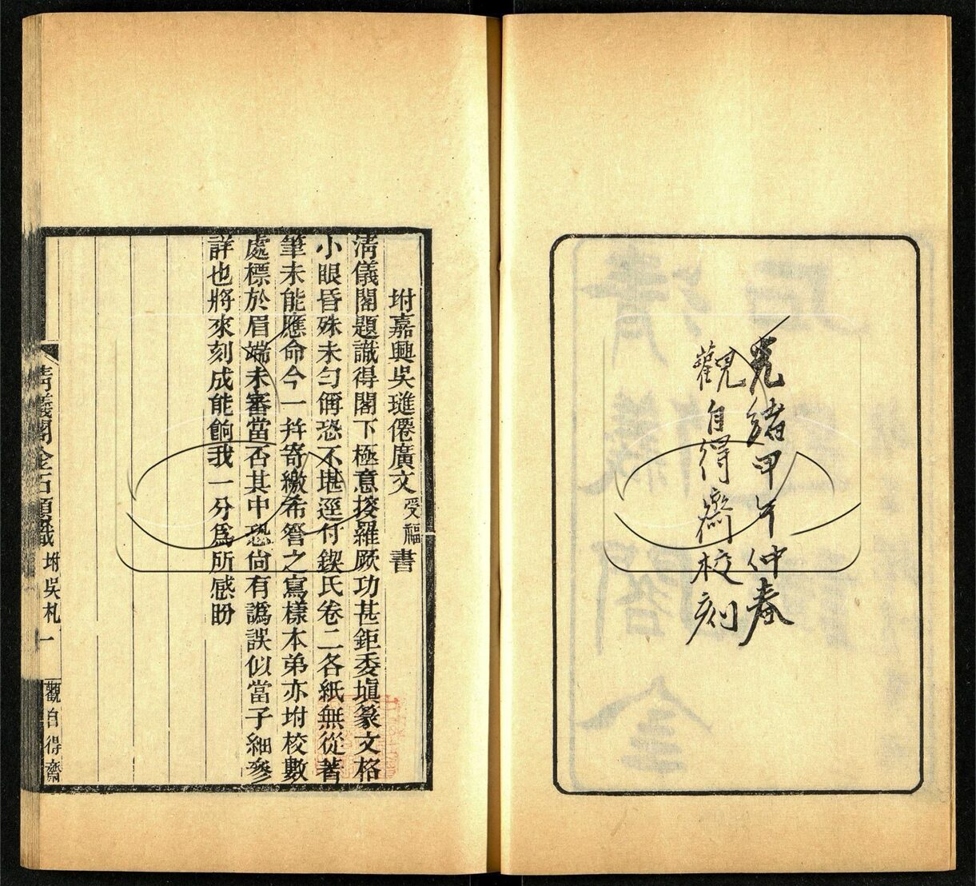 光緒甲午仲春
觀自得齋校刻
坿嘉興吳璡僊廣文受福書
淸儀閣題識得閣下極意搜羅厥功甚鉅委塡篆文格
小眼昏殊未勻偁恐不堪逕付鍥氏卷二各紙無從著
筆未能應命今一幷寄繳希詧之寫樣本弟亦坿校數
處標於眉端未審當否其中恐尙有譌誤似當子細參
詳也將來刻成能餉我一分爲所感盼
淸儀閣金石題識 坿吳札 一 觀自得齋